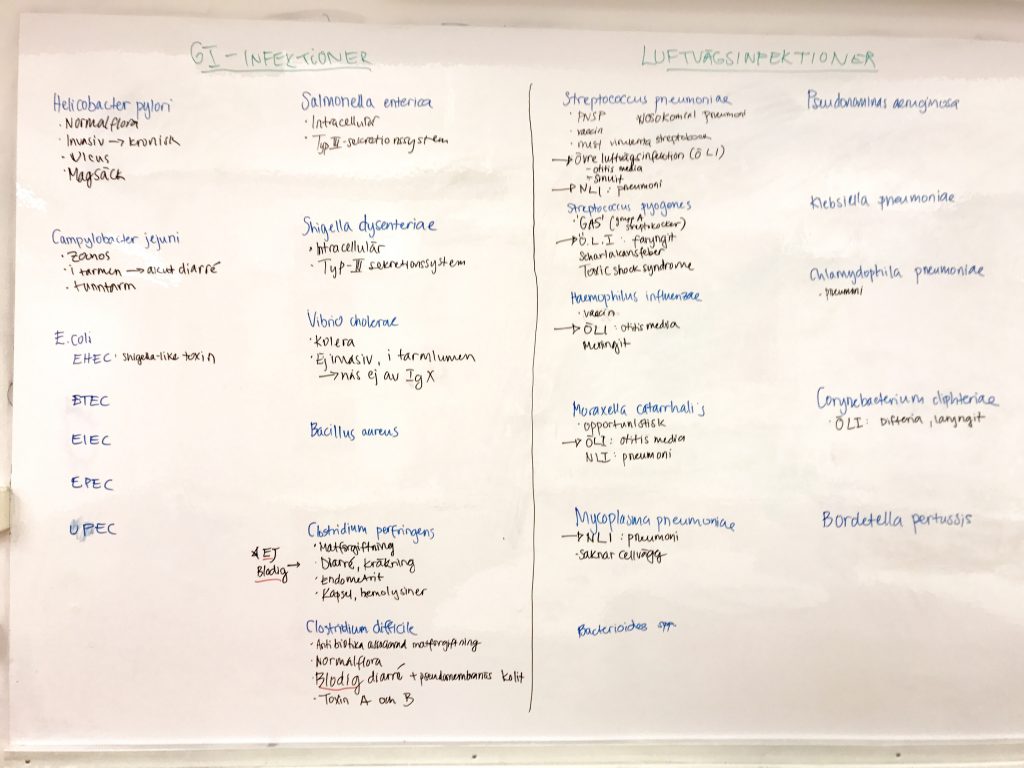 GI-INFEKTIONER
Helicobacter pylori
· Normalflora
· Invasiv → kronisk
· Ulcus
· Magsäck
Campylobacter jejuni
· Zoonos
· i tarmen → akut diarré
· tunntarm
E.coli
EHEC · Shigella-like toxin
ETEC
EIEC
EPEC
UPEC
Salmonella enterica
· Intracellulär
· Typ III-sekretionssystem
Shigella dysenteriae
· Intracellulär
· Typ-III sekretionssystem
Vibrio cholerae
· Kolera
· Ej invasiv, i tarmlumen
→ nås ej av IgX
Bacillus aureus
Clostridium perfringens
· Matförgiftning
* EJ Blodig → · Diarré, kräkning
· Endometrit
· Kapsel, hemolysiner
Clostridium difficile
· Antibiotika associerad matförgiftning
· Normalflora
· Blodig diarré + pseudomembranös kolit
· Toxin A och B
LUFTVÄGSINFEKTIONER
Streptococcus pneumoniae
· PNSP Nosokomial pneumoni
· vaccin
· mest virulenta
→ Övre luftvägsinfektion (ÖLI)
- otitis media
- Sinuit
→ NLI: pneumoni
Streptococcus pyogenes
· "GAS" (grupp A streptokocker)
→ Ö.L.I: faryngit
Scharlakansfeber
Toxic shock syndrome
Haemophilus influenzae
· vaccin
→ ÖLI: otitis media
Meningit
Moraxella catarrhalis
· opportunistisk
→ ÖLI: otitis media
NLI: pneumoni
Mycoplasma pneumoniae
→ NLI: pneumoni
· saknar cellvägg
Bacterioides spp.
Pseudonaminas aeruginosa
Klebsiella pneumoniae
Chlamydophila pneumoniae
· pneumoni
Corynebacterium diphteriae
· ÖLI: Difteria, laryngit
Bordetella pertussis